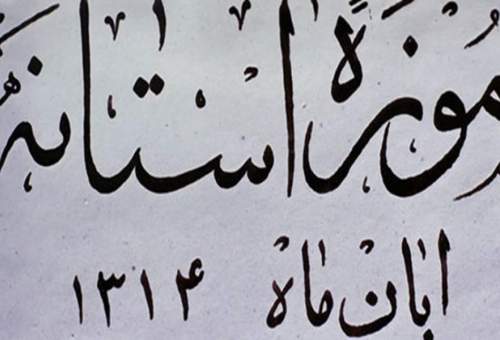 موزهٔ آستانه
ابان ماه ۱۳۱۴